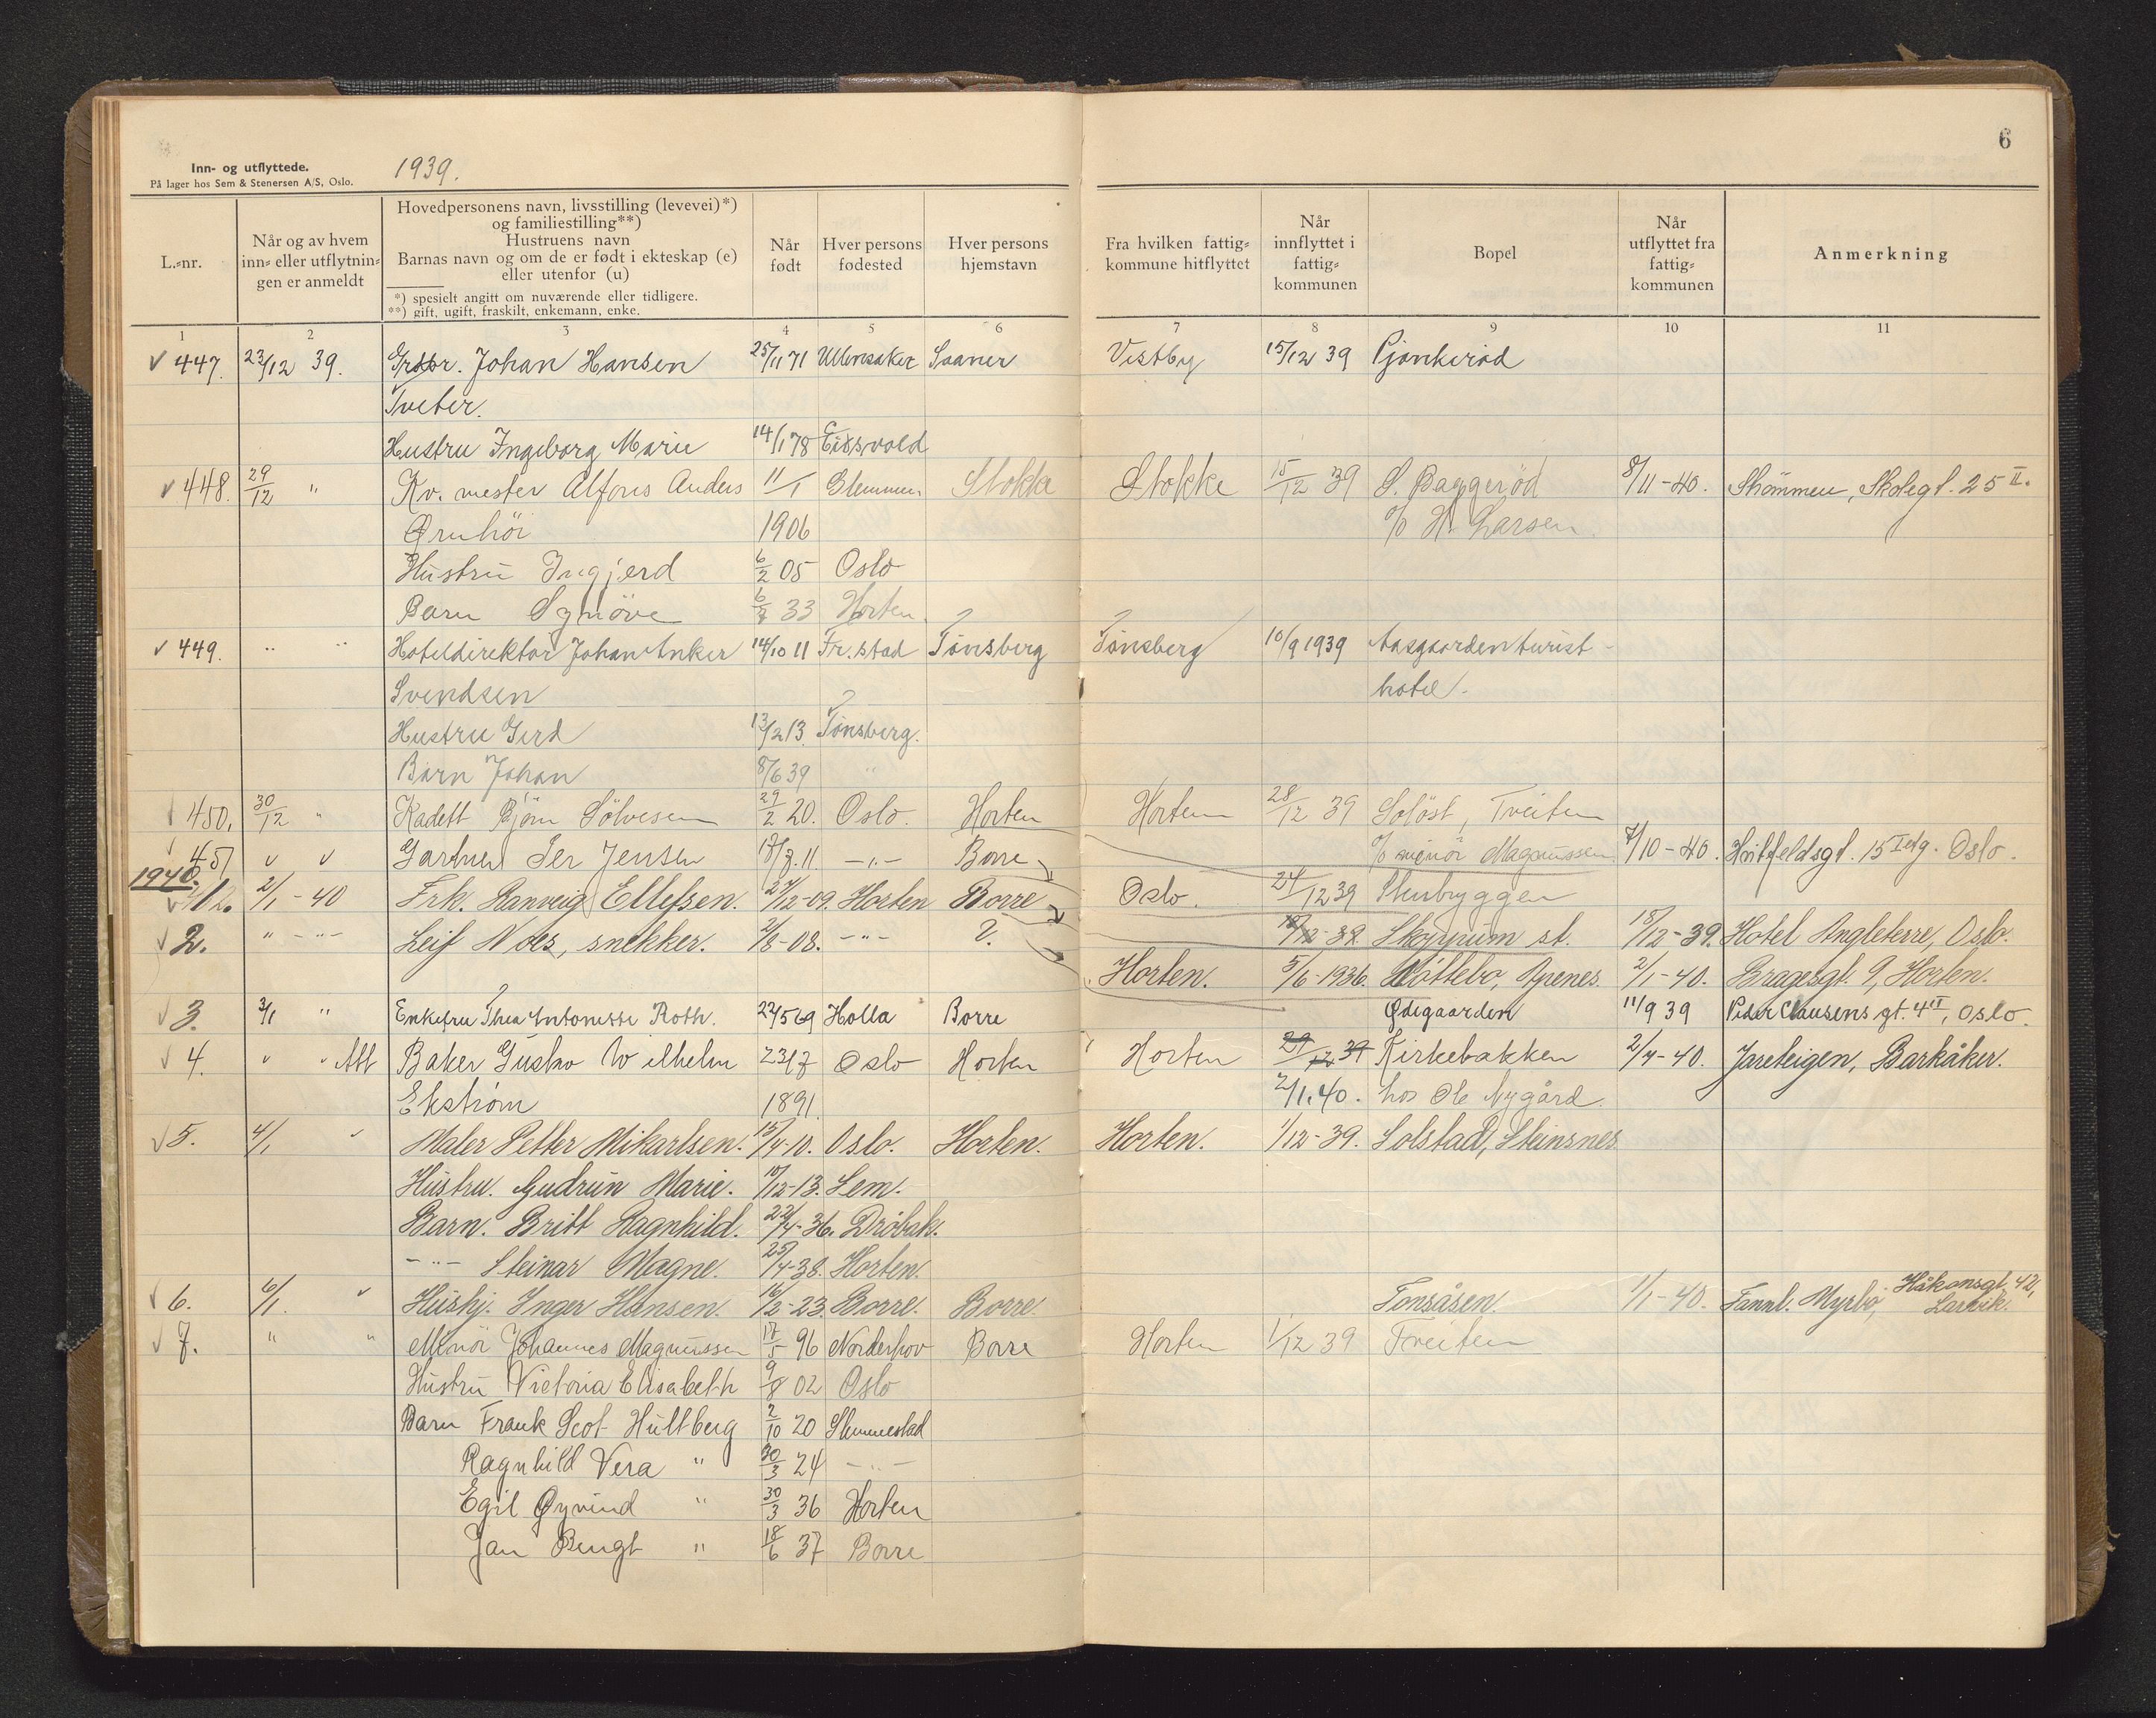 6
Inn- og utflyttede. 1939.
På lager hos Sem & Stenersen A/S, Oslo.
L.-nr.
Når og av hvem inn- eller utflytningen er anmeldt
Hovedpersonens navn, livsstilling (levevei)*)
og familiestilling**)
Hustruens navn
Barnas navn og om de er født i ekteskap (e)
eller utenfor (u)
*) spesielt angitt om nuværende eller tidligere.
**) gift, ugift, fraskilt, enkemann, enke.
Når født
Hver persons fødested
Hver persons hjemstavn
Fra hvilken fattigkommune hitflyttet
Når innflyttet i fattigkommunen
Bopel
Når utflyttet fra fattigkommunen
Anmerkning
1 2 3 4 5 6 7 8 9 10 11
447. 23/12 39. Johan Hansen 25/11 71 Ullensaker Saaner Vestby 15/12 39
Tveter.
Hustru Ingeborg Marie 14/1 78 Eidsvold
448. 29/12 " Kv. mester Alfons Anders 11/1 Glemmen Stokke Stokke 15/12 39 S. Baggerød 8/11-40. Skolegt. 25 II.
1906 c/o H. Larsen
Hustru Ingjerd 6/2 05 Oslo
Barn Synøve 33 Horten
449. " " Hoteldirektør Johan Anker 14/10 11 Fr.stad Tønsberg Tønsberg 10/9 1939 Aasgaarden turist-
Svendsen hotel.
Hustru Gerd 13/2 13. Tønsberg.
Barn Johan 8/6 39 "
450. 30/12 " Kadett Bjørn Sölvesen 29/2 20. Oslo. Horten Horten 28/12 39 Solöst, Tveiten
451 " " Gartner Per Jensen 11 -"- Borre c/o menör Magnussen 7/10-40. Huitfeldsgt. 15 I etg. Oslo.
1940.
1. 2/1-40 Frk. Ranveig Ellefsen. 27/12-09. Horten Borre Oslo. 24/12 39
2. " -"- Leif Noes, snekker. 2/8-08. -"- ?. Skoppum st. 18/12-39. Hotel Angleterre, Oslo.
Horten. 5/6-1936. 2/1-40. Bragesgt. 9, Horten.
3. 3/1 " Enkefru Thea Antonette Roth. 22/5 69 Holla Borre Ødegaarden 11/9 39 Peder Clausens gt. 4 II, Oslo.
4. " " Att Baker Gustav Wilhelm 23/7 Oslo Horten Horten 39 Kirkebakken 2/4-40. Jareteigen, Barkåker.
Ekstrøm 1891. 2/1.40. hos Ole Nygård.
5. 4/1 " Maler Petter Mikarlsen. 15/4-10. Oslo. Horten. Horten. 1/12-39. Solstad, Steinsnes
Hustru. Gudrun Marie. 10/12-13. Sem.
Barn. Britt Ragnhild. 22/4-36. Drøbak.
-"- Steinar Magne. 25/4-38. Horten.
6. 6/1. " Hushj. Inger Hansen. 16/2-23. Borre. Borre. Tonsåsen. 1/1-40. Fannl. Myrbo, Håkonsgt. 42, Larvik.
7. " " Menör Johannes Magnussen 17/5 96 Norderhov Borre Horten 1/12 39 Tveiten
Hustru Victoria Elisabeth 9/8 02 Oslo
Barn Frank Scot Hultberg 2/10 20 Slemmestad
Ragnhild Vera " 30/3 24 -"-
Egil Øyvind " 30/3 36 Horten
Jan Bengt " 18/6 37 Borre